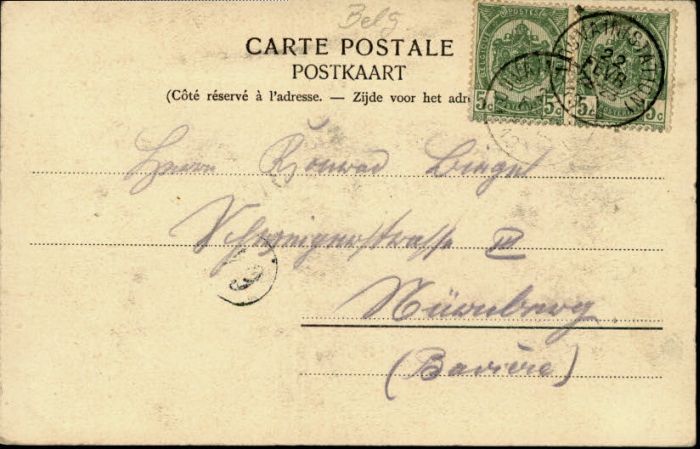 Belg
CARTE POSTALE
POSTKAART
(Côté réservé à l'adresse. — Zijde voor het adr
5c 5c 5c 5c
(STATION)
22
FEVR
Herrn Konrad
Schweigerstrasse III
Nürnberg
(Bavière)